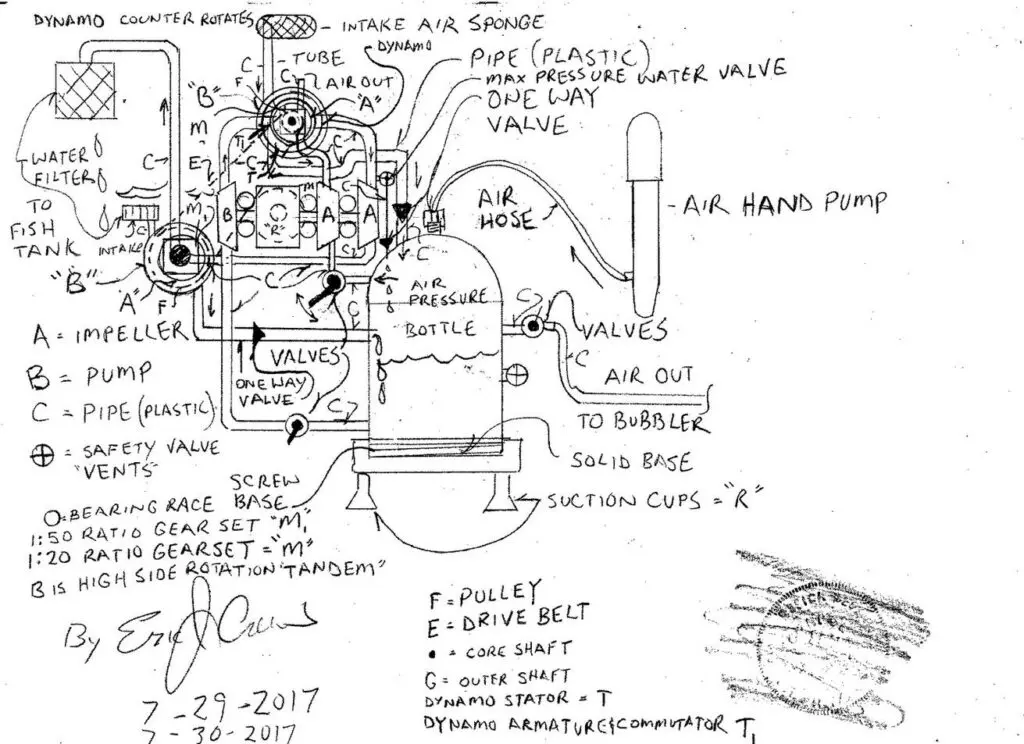 DYNAMO COUNTER ROTATES
- INTAKE AIR SPONGE
DYNAMO
TUBE
C
F
C
AIR OUT
PIPE (PLASTIC)
MAX PRESSURE WATER VALVE
ONE WAY
VALVE
"B"
"A"
M
E
C
T
C
T
C
WATER
FILTER
TO
FISH
TANK
C
M1
C
INTAKE
"B"
"A"
F
B
"R"
M
A
C
A
C
C
C
C
AIR
HOSE
- AIR HAND PUMP
AIR
PRESSURE
BOTTLE
C
VALVES
C
AIR OUT
TO BUBBLER
A = IMPELLER
B = PUMP
C = PIPE (PLASTIC)
⊕ = SAFETY VALVE
"VENTS"
VALVES
ONE WAY
VALVE
C
SOLID BASE
SCREW
BASE
SUCTION CUPS = "R"
O=BEARING RACE
1:50 RATIO GEAR SET "M1
1:20 RATIO GEARSET = "M"
B IS HIGH SIDE ROTATION "TANDEM"
By Eric J Crews
7-29-2017
7-30-2017
F = PULLEY
E = DRIVE BELT
• = CORE SHAFT
G = OUTER SHAFT
DYNAMO STATOR = T
DYNAMO ARMATURE & COMMUTATOR T1